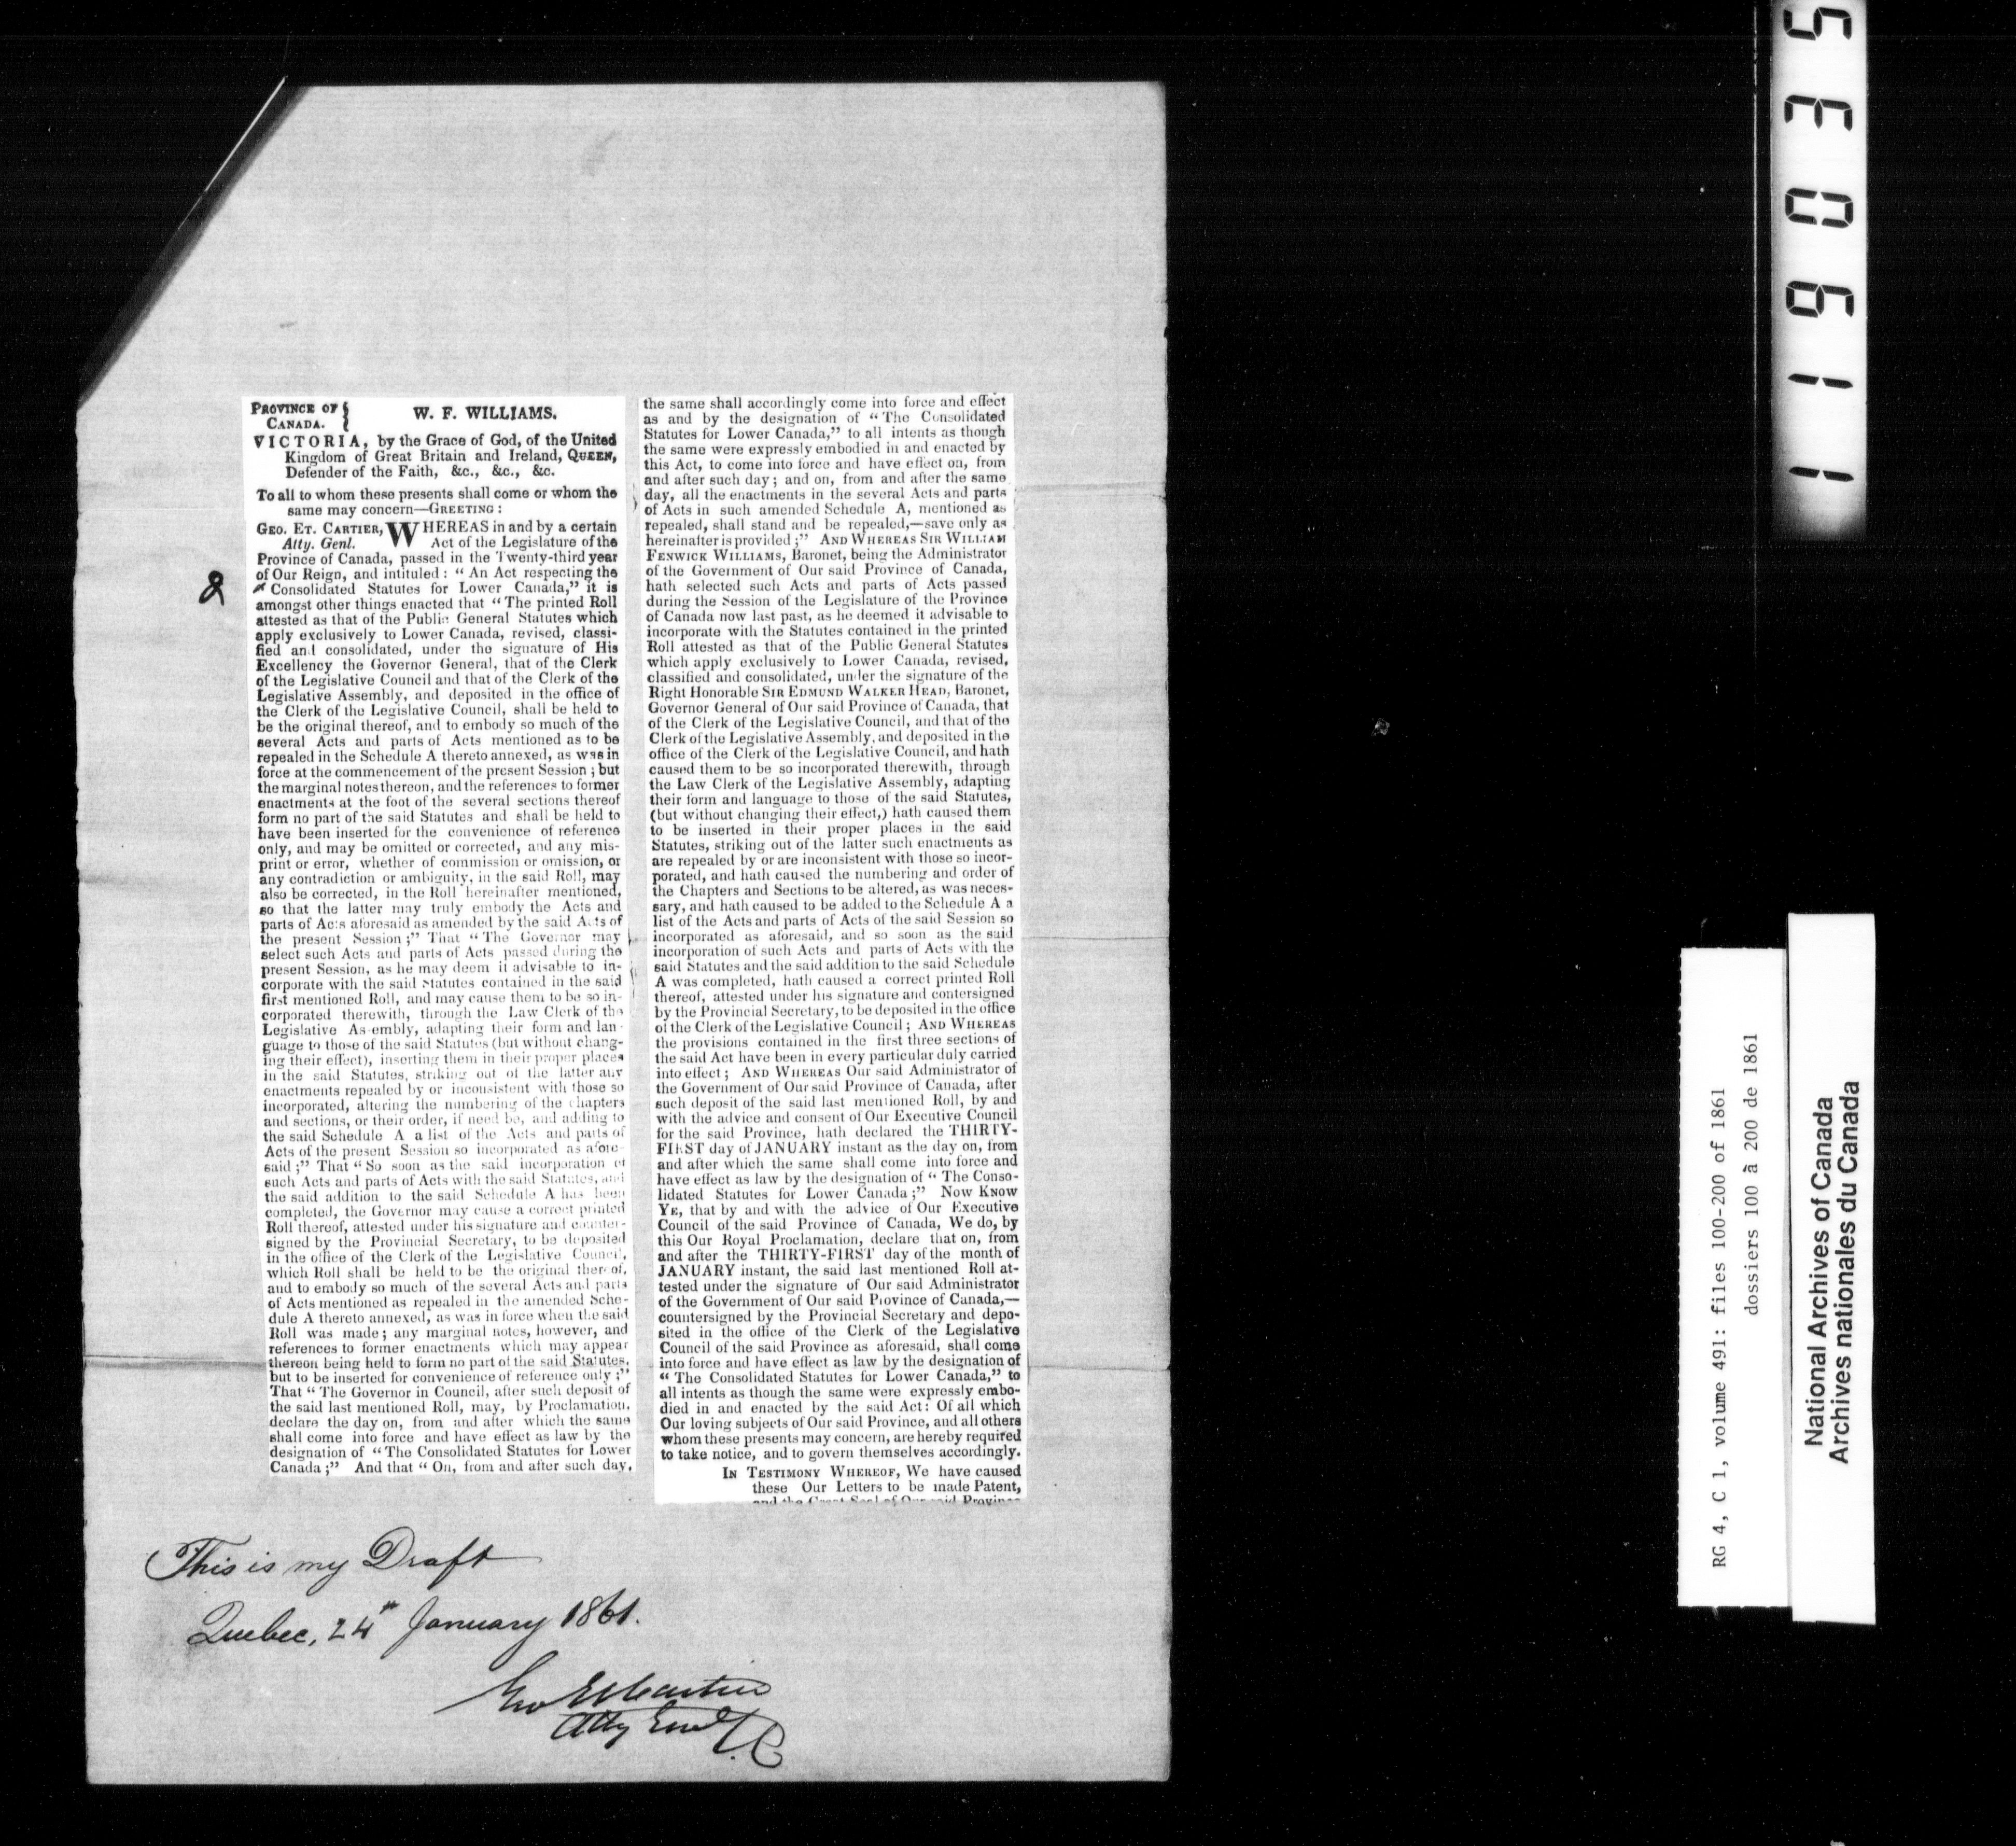 PROVINCE OF
CANADA.
W. F. WILLIAMS.
VICTORIA, by the Grace of God, of the United
Kingdom of Great Britain and Ireland, QUEEN,
Defender of the Faith, &c., &c., &c.
To all to whom these presents shall come or whom the
same may concern—GREETING:
GEO. ET. CARTIER, WHEREAS in and by a certain
Atty. Genl. Act of the Legislature of the
Province of Canada, passed in the Twenty-third year
of Our Reign, and intituled: "An Act respecting the
Consolidated Statutes for Lower Canada," it is
amongst other things enacted that "The printed Roll
attested as that of the Public General Statutes which
apply exclusively to Lower Canada, revised, classi-
fied and consolidated, under the signature of His
Excellency the Governor General, that of the Clerk
of the Legislative Council and that of the Clerk of the
Legislative Assembly, and deposited in the office of
the Clerk of the Legislative Council, shall be held to
be the original thereof, and to embody so much of the
several Acts and parts of Acts mentioned as to be
repealed in the Schedule A thereto annexed, as was in
force at the commencement of the present Session; but
the marginal notes thereon, and the references to former
enactments at the foot of the several sections thereof
form no part of the said Statutes and shall be held to
have been inserted for the convenience of reference
only, and may be omitted or corrected, and any mis-
print or error, whether of commission or omission, or
any contradiction or ambiguity, in the said Roll, may
also be corrected, in the Roll hereinafter mentioned,
so that the latter may truly embody the Acts and
parts of Acts aforesaid as amended by the said Acts of
the present Session;" That "The Governor may
select such Acts and parts of Acts passed during the
present Session, as he may deem it advisable to in-
corporate with the said Statutes contained in the said
first mentioned Roll, and may cause them to be so in-
corporated therewith, through the Law Clerk of the
Legislative Assembly, adapting their form and lan-
guage to those of the said Statutes (but without chang-
ing their effect), inserting them in their proper places
in the said Statutes, striking out of the latter any
enactments repealed by or inconsistent with those so
incorporated, altering the numbering of the chapters
and sections, or their order, if need be, and adding to
the said Schedule A a list of the Acts and parts of
Acts of the present Session so incorporated as afore-
said;" That "So soon as the said incorporation of
such Acts and parts of Acts with the said Statutes, and
the said addition to the said Schedule A has been
completed, the Governor may cause a correct printed
Roll thereof, attested under his signature and counter-
signed by the Provincial Secretary, to be deposited
in the office of the Clerk of the Legislative Council,
which Roll shall be held to be the original thereof,
and to embody so much of the several Acts and parts
of Acts mentioned as repealed in the amended Sche-
dule A thereto annexed, as was in force when the said
Roll was made; any marginal notes, however, and
references to former enactments which may appear
thereon being held to form no part of the said Statutes,
but to be inserted for convenience of reference only;"
That "The Governor in Council, after such deposit of
the said last mentioned Roll, may, by Proclamation,
declare the day on, from and after which the same
shall come into force and have effect as law by the
designation of "The Consolidated Statutes for Lower
Canada;" And that "On, from and after such day,
the same shall accordingly come into force and effect
as and by the designation of "The Consolidated
Statutes for Lower Canada," to all intents as though
the same were expressly embodied in and enacted by
this Act, to come into force and have effect on, from
and after such day; and on, from and after the same
day, all the enactments in the several Acts and parts
of Acts in such amended Schedule A, mentioned as
repealed, shall stand and be repealed,—save only as
hereinafter is provided;" AND WHEREAS SIR WILLIAM
FENWICK WILLIAMS, Baronet, being the Administrator
of the Government of Our said Province of Canada,
hath selected such Acts and parts of Acts passed
during the Session of the Legislature of the Province
of Canada now last past, as he deemed it advisable to
incorporate with the Statutes contained in the printed
Roll attested as that of the Public General Statutes
which apply exclusively to Lower Canada, revised,
classified and consolidated, under the signature of the
Right Honorable SIR EDMUND WALKER HEAD, Baronet,
Governor General of Our said Province of Canada, that
of the Clerk of the Legislative Council, and that of the
Clerk of the Legislative Assembly, and deposited in the
office of the Clerk of the Legislative Council, and hath
caused them to be so incorporated therewith, through
the Law Clerk of the Legislative Assembly, adapting
their form and language to those of the said Statutes,
(but without changing their effect,) hath caused them
to be inserted in their proper places in the said
Statutes, striking out of the latter such enactments as
are repealed by or are inconsistent with those so incor-
porated, and hath caused the numbering and order of
the Chapters and Sections to be altered, as was neces-
sary, and hath caused to be added to the Schedule A a
list of the Acts and parts of Acts of the said Session so
incorporated as aforesaid, and so soon as the said
incorporation of such Acts and parts of Acts with the
said Statutes and the said addition to the said Schedule
A was completed, hath caused a correct printed Roll
thereof, attested under his signature and contersigned
by the Provincial Secretary, to be deposited in the office
of the Clerk of the Legislative Council; AND WHEREAS
the provisions contained in the first three sections of
the said Act have been in every particular duly carried
into effect; AND WHEREAS Our said Administrator of
the Government of Our said Province of Canada, after
such deposit of the said last mentioned Roll, by and
with the advice and consent of Our Executive Council
for the said Province, hath declared the THIRTY-
FIRST day of JANUARY instant as the day on, from
and after which the same shall come into force and
have effect as law by the designation of "The Conso-
lidated Statutes for Lower Canada;" NOW KNOW
YE, that by and with the advice of Our Executive
Council of the said Province of Canada, We do, by
this Our Royal Proclamation, declare that on, from
and after the THIRTY-FIRST day of the month of
JANUARY instant, the said last mentioned Roll at-
tested under the signature of Our said Administrator
of the Government of Our said Province of Canada,—
countersigned by the Provincial Secretary and depo-
sited in the office of the Clerk of the Legislative
Council of the said Province as aforesaid, shall come
into force and have effect as law by the designation of
"The Consolidated Statutes for Lower Canada," to
all intents as though the same were expressly embo-
died in and enacted by the said Act: Of all which
Our loving subjects of Our said Province, and all others
whom these presents may concern, are hereby required
to take notice, and to govern themselves accordingly.
IN TESTIMONY WHEREOF, We have caused
these Our Letters to be made Patent,
and the Great Seal of Our said Province
This is my Draft
Quebec, 24th January 1861.
Geo Et Cartier
Atty Genl L.C
119035
RG 4, C 1, volume 491: files 100-200 of 1861
dossiers 100 à 200 de 1861
National Archives of Canada
Archives nationales du Canada